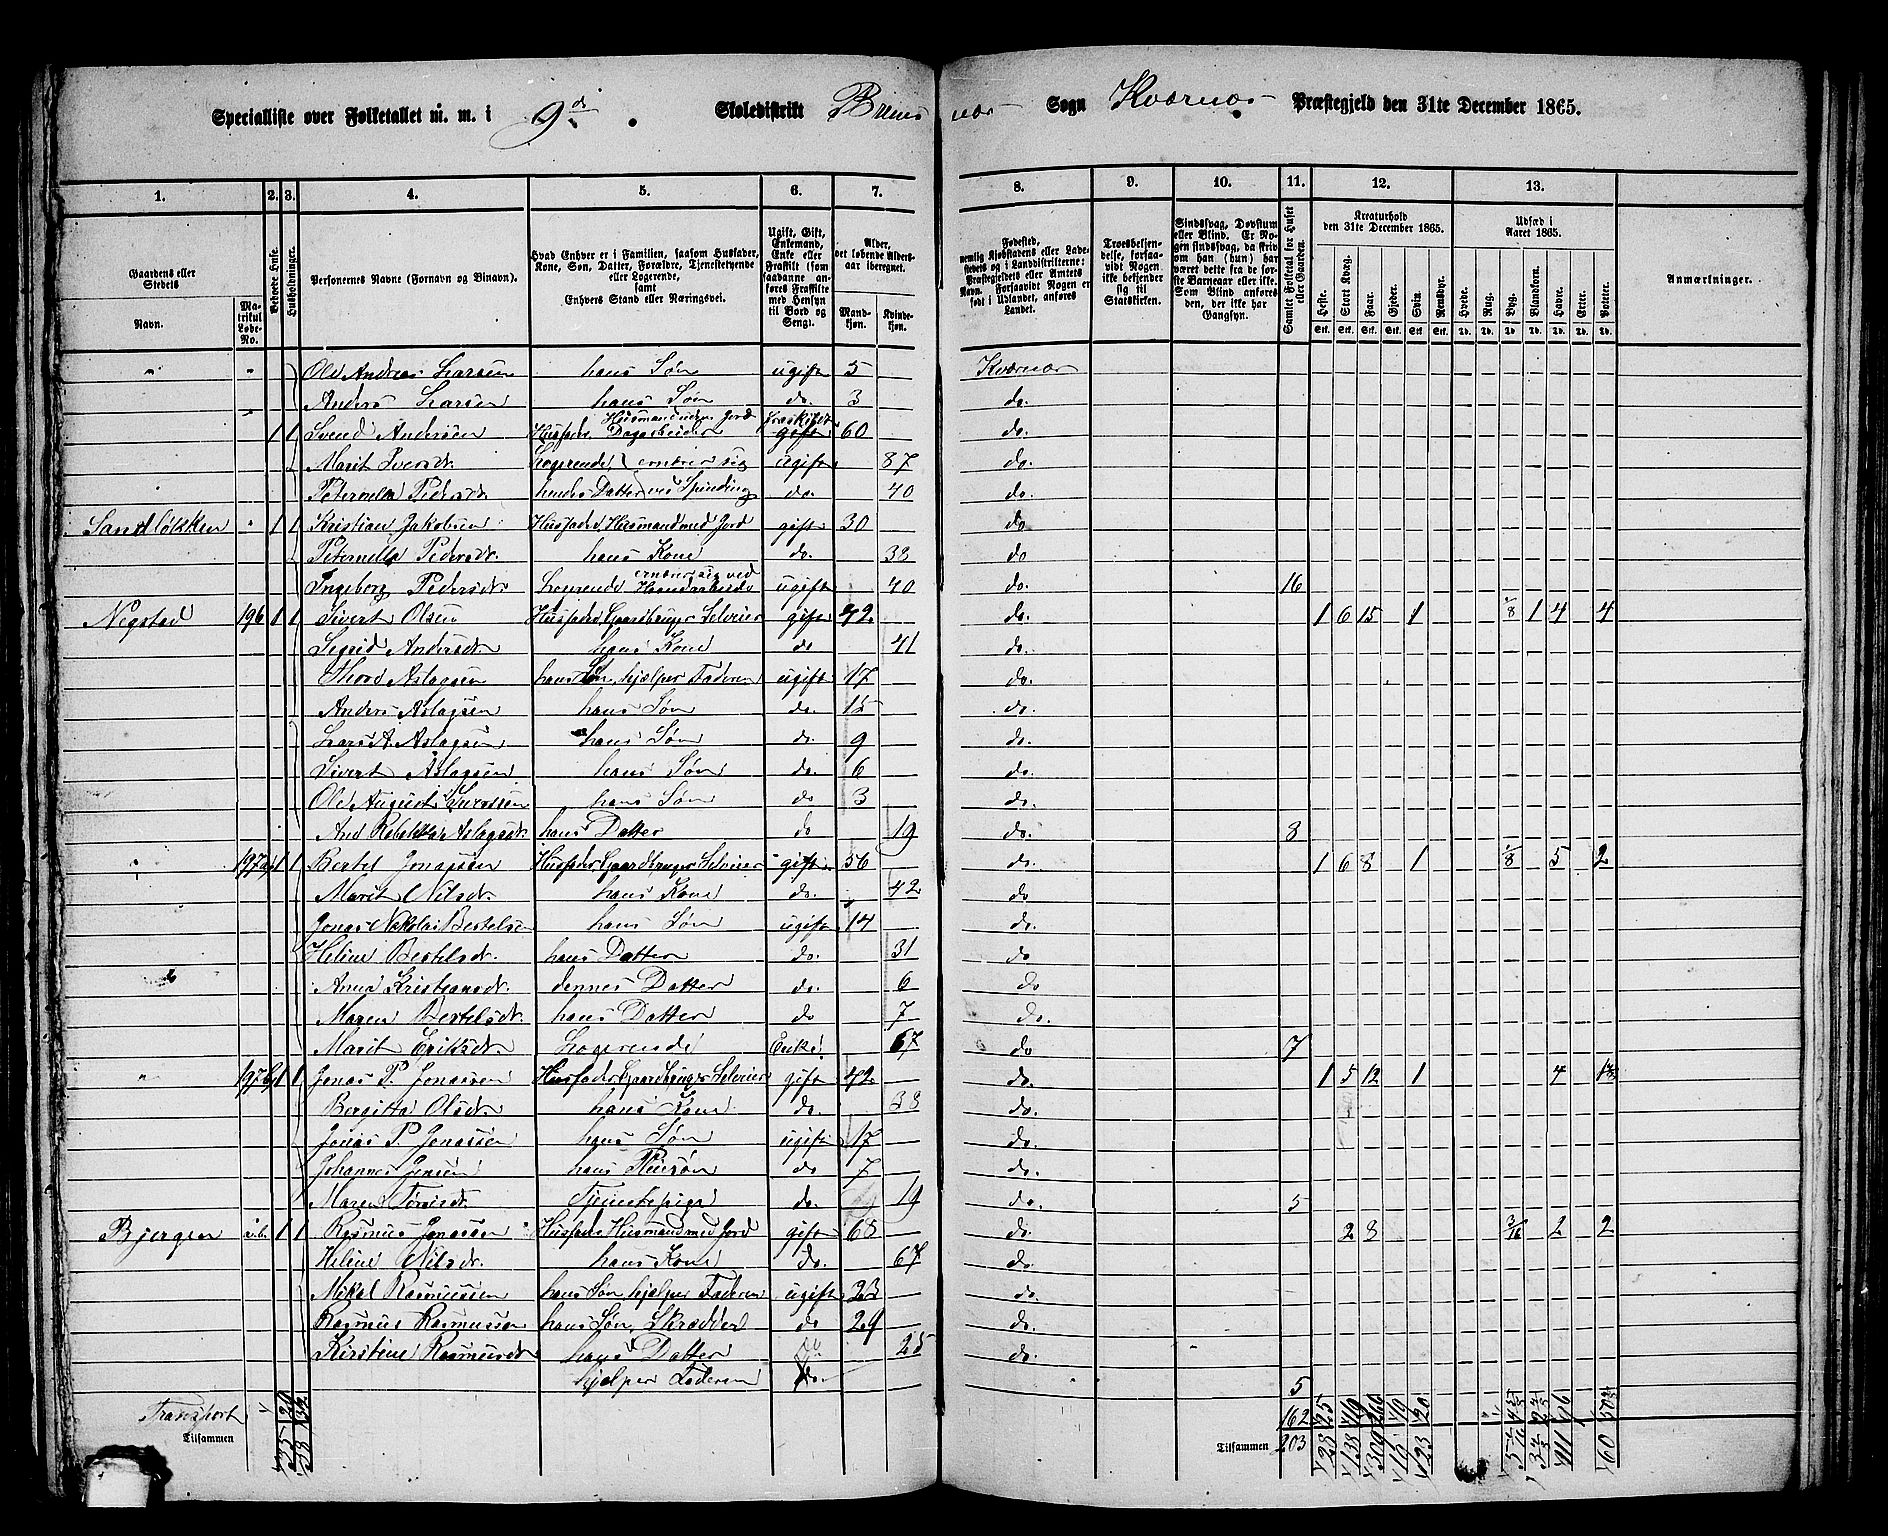 Specialliste over Folketallet m. m. i 9de Skoledistrikt Brems næs Sogn Kværnæs Præstegjeld den 31te December 1865.
1. 2. 3. 4. 5. 6. 7. 8. 9. 10. 11. 12. 13.
Gaardens eller Stedets Navn. Matrikul Løbe-No.
Beboede Huse. Husholdninger.
Personernes Navne (Fornavn og Binavn).
Hvad Enhver er i Familien, saasom Husfader, Kone, Søn, Datter, Forældre, Tjenestetyende eller Logerende, samt Enhvers Stand eller Næringsvei.
Ugift, Gift, Enkemand, Enke eller Fraskilt (saadanne anføres Fraskilte med Hensyn til Bord og Seng).
Alder, det løbende Aldersaar iberegnet. Mandkjøn. Kvindekjøn.
Kreaturhold den 31te December 1865.
Udsæd i Aaret 1865.
Samlet Folketal for Huset eller Gaarden.
Heste. Stort Kvæg. Faar. Gjeder. Sviin. Rensdyr. Hvede. Rug. Byg. Blandkorn. Havre. Erter. Poteter.
Anmærkninger.
" " Ole Andreas Larsen hans Søn ugift 5 Kværnæs
Anders Larsen hans Søn do. 3 do.
" 1 1 Svend Andersen Husfader, Husmand uden Jord Fraskildt 60 do.
Marit Iversdt. Logerende, ernærer sig ugift 87 do.
Peternella Pedersdt. hendes Datter ved Spinding do. 40 do.
Sandløkken " 1 1 Kristian Jakobsen Husfader Husmand med Jord gift 30 do
Peternella Pedersdt. hans Kone do. 33 do
Ingeborg Pedersdt. Logerende ernærer sig ved Haandarbeide ugift 40 do. 16
Negstad 196 1 1 Sivert Olsen Husfader Gaardbruger Selveier gift 42 do. 1 6 15 1 1/8 1 4 4
Sigrid Andersdt. hans Kone do 41 do.
Thord Aslagsen hans Søn, hjælper Faderen ugift 17 do.
Anders Aslagsen hans Søn do. 15 do.
Lars A. Aslagsen hans Søn do. 9 do.
Sivert Aslagsen hans Søn do. 6 do.
Ole August hans Søn do 3 do.
Ane Rebekka Aslagsdt. hans Datter do 19 do. 8
" 197a 1 1 Bertel Jonassen Husfader, Gaardbruger Selveier gift 56 do. 1 6 8 1 1/8 5 2
Marit Nilsdt. hans Kone do. 42 do
Jonas Nikolai Bertelsen hans Søn ugift 14 do.
Heline Bertelsdt. hans Datter do. 31 do
Anna Kristiansdt. dennes Datter do. 6 do
Maren Bertelsdt. hans Datter do. 7 do.
Marit Eriksdt. Logerende Enke 67 do 7
" 197b 1 1 Jonas P. Jonassen Husfader Gaardbruger Selveier gift 42 do. 1 5 12 1 4
Bergitta Olsdt. hans Kone do. 33 do.
Jonas P. Jonassen hans Søn ugift 17 do.
Johannes Jensen hans Pleiesøn do 7 do.
Maren Tjenestepige do. 19 do. 5
Bjergen 1 1 Rasmus Jonassen Husfader Husmand med Jord gift 68 do. 2 8 3/16 2 2
Heline Nilsdt. hans Kone do. 67 do.
Mikal Rasmussen hans Søn, hjælper Faderen ugift 23 do.
Rasmus Rasmussen hans Søn, Skrædder do 29 do.
Kirstine Rasmusdt. hans Datter do 25 do.
hjælper Faderen do. 5
Transport 162
Tilsammen Tilsammen 203